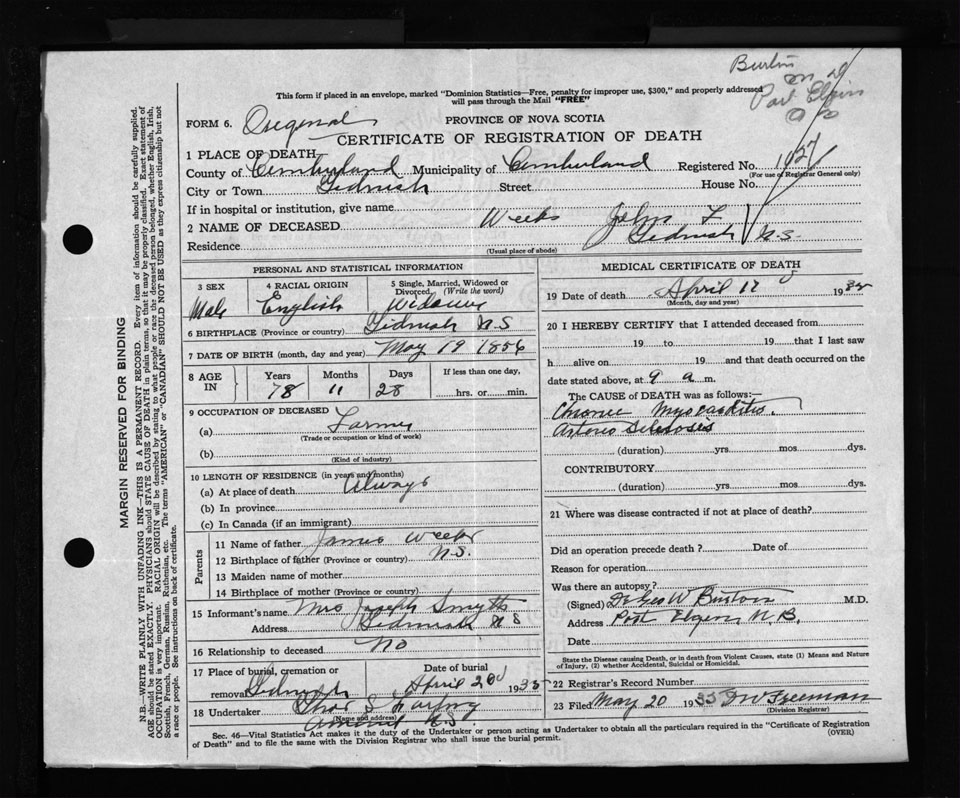 Port Elgin
This form if placed in an envelope, marked "Dominion Statistics—Free, penalty for improper use, $300," and properly addressed
will pass through the Mail "FREE"
FORM 6. Original
PROVINCE OF NOVA SCOTIA
CERTIFICATE OF REGISTRATION OF DEATH
1 PLACE OF DEATH
County of Cumberland Municipality of Cumberland Registered No. 1057
(For use of Registrar General only)
City or Town Tidnish Street House No.
If in hospital or institution, give name
2 NAME OF DECEASED Weeks John F
Residence Tidnish N.S.
(Usual place of abode)
PERSONAL AND STATISTICAL INFORMATION
3 SEX 4 RACIAL ORIGIN 5 Single, Married, Widowed or Divorced. (Write the word)
Male English Widower
6 BIRTHPLACE (Province or country) Tidnish N.S
7 DATE OF BIRTH (month, day and year) May 19 1856
8 AGE IN Years Months Days If less than one day,
78 11 28 hrs. or min.
9 OCCUPATION OF DECEASED
(a) Farmer
(Trade or occupation or kind of work)
(b)
(Kind of industry)
10 LENGTH OF RESIDENCE (in years and months)
(a) At place of death Always
(b) In province
(c) In Canada (if an immigrant)
Parents
11 Name of father James Weeks
12 Birthplace of father (Province or country) N.S.
13 Maiden name of mother
14 Birthplace of mother (Province or country)
15 Informant's name Mrs Joseph Smyth
Address Tidnish N S
16 Relationship to deceased No
17 Place of burial, cremation or removal Date of burial
Tidnish April 20 1935
18 Undertaker Chas S
(Name and address)
Amherst N.S.
MEDICAL CERTIFICATE OF DEATH
19 Date of death April 193
(Month, day and year)
20 I HEREBY CERTIFY that I attended deceased from
19 to 19 that I last saw
h alive on 19 and that death occurred on the
date stated above, at 9 a m.
The CAUSE OF DEATH was as follows:—
Chronic Myocarditis.
Arterio Sclerosis
(duration) yrs mos dys.
CONTRIBUTORY
(duration) yrs mos dys.
21 Where was disease contracted if not at place of death?
Did an operation precede death? Date of
Reason for operation
Was there an autopsy?
(Signed) Geo W Burton M.D.
Address Port Elgin, N.B.
Date
State the Disease causing Death, or in death from Violent Causes, state (1) Means and Nature of Injury, (2) whether Accidental, Suicidal or Homicidal.
22 Registrar's Record Number
23 Filed May 20 1935 Freeman
(Division Registrar)
Sec. 46—Vital Statistics Act makes it the duty of the Undertaker or person acting as Undertaker to obtain all the particulars required in the "Certificate of Registration
of Death" and to file the same with the Division Registrar who shall issue the burial permit.
(OVER)
MARGIN RESERVED FOR BINDING
N.B.—WRITE PLAINLY WITH UNFADING INK—THIS IS A PERMANENT RECORD. Every item of information should be carefully supplied.
AGE should be stated EXACTLY. PHYSICIANS should STATE CAUSE OF DEATH in plain terms, so that it may be properly classified. Exact statement of
OCCUPATION is very important. RACIAL ORIGIN will be described by stating to what people or race the deceased person belonged, whether English, Irish,
Scottish, French, German, Russian, Ruthenian, etc. The terms "AMERICAN" or "CANADIAN" SHOULD NOT BE USED as they express citizenship but not
a race or people. See instructions on back of certificate.